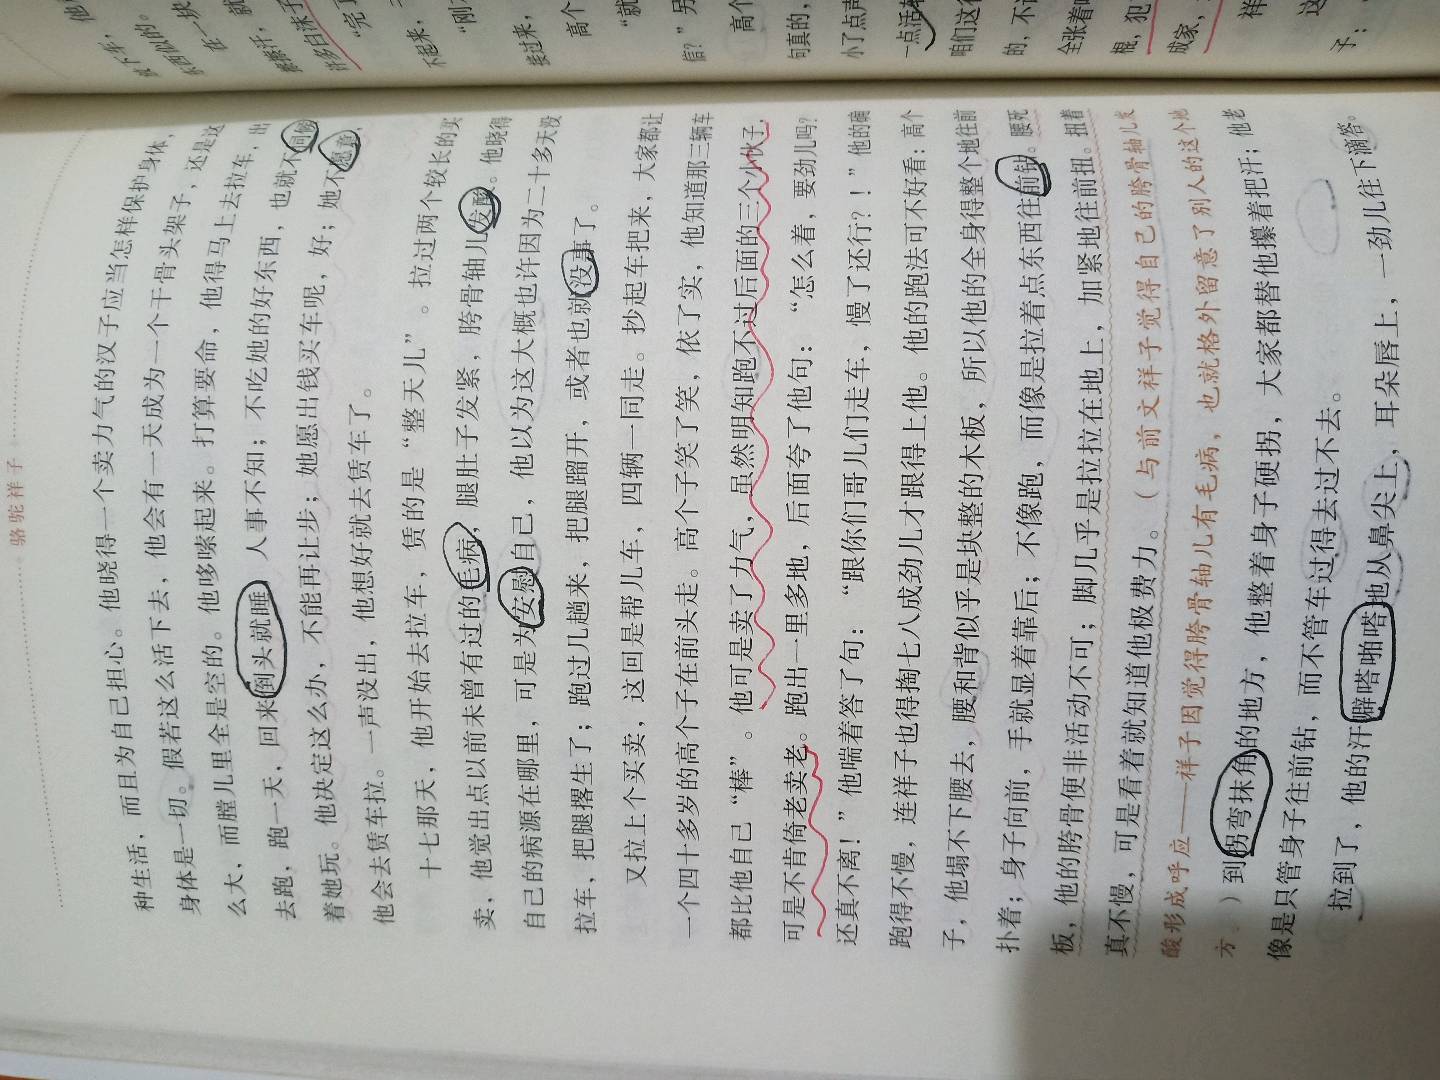 骆驼祥子
种生活，而且为自己担心。他晓得一个卖力气的汉子应当怎样保护身体，
身体是一切。假若这么活下去，他会有一天成为一个干骨头架子，还是这
么大，而膛儿里全是空的。他哆嗦起来。打算要命，他得马上去拉车，出
去跑，跑一天，回来倒头就睡，人事不知；不吃她的好东西，也就不伺候
着她玩。他决定这么办，不能再让步；她愿出钱买车呢，好；她不愿意，
他会去赁车拉。一声没出，他想好就去赁车了。
十七那天，他开始去拉车，赁的是“整天儿”。拉过两个较长的买
卖，他觉出点以前未曾有过的毛病，腿肚子发紧，胯骨轴儿发酸。他晓得
自己的病源在哪里，可是为安慰自己，他以为这大概也许因为二十多天没
拉车，把腿撂生了；跑过几趟来，把腿蹓开，或者也就没事了。
又拉上个买卖，这回是帮儿车，四辆一同走。抄起车把来，大家都让
一个四十多岁的高个子在前头走。高个子笑了笑，依了实，他知道那三辆车
都比他自己“棒”。他可是卖了力气，虽然明知跑不过后面的三个小伙子，
可是不肯倚老卖老。跑出一里多地，后面夸了他句：“怎么着，要劲儿吗？
还真不离！”他喘着答了句：“跟你们哥儿们走车，慢了还行？！”他的确
跑得不慢，连祥子也得掏七八成劲儿才跟得上他。他的跑法可不好看：高个
子，他塌不下腰去，腰和背似乎是块整的木板，所以他的全身得整个地往前
扑着；身子向前，手就显着靠后；不像跑，而像是拉着点东西往前钻。腰死
板，他的胯骨便非活动不可；脚几乎是拉拉在地上，加紧地往前扭。扭着
真不慢，可是看着就知道他极费力。（与前文祥子觉得自己的胯骨轴儿发
酸形成呼应——祥子因觉得胯骨轴儿有毛病，也就格外留意了别人的这个地
方。）到拐弯抹角的地方，他整着身子硬拐，大家都替他攥着把汗；他老
像是只管身子往前钻，而不管车过得去过不去。
拉到了，他的汗噼嗒啪嗒地从鼻尖上，耳朵唇上，一劲儿往下滴答。
放下车，
在一块
“完了
不起来，
“刚
接过来，
高个
“就
信？”另
高个
句真的，
小了点声
一点活
咱们这行
的，不
全张着
棍，犯
成家，
祥
这
子：